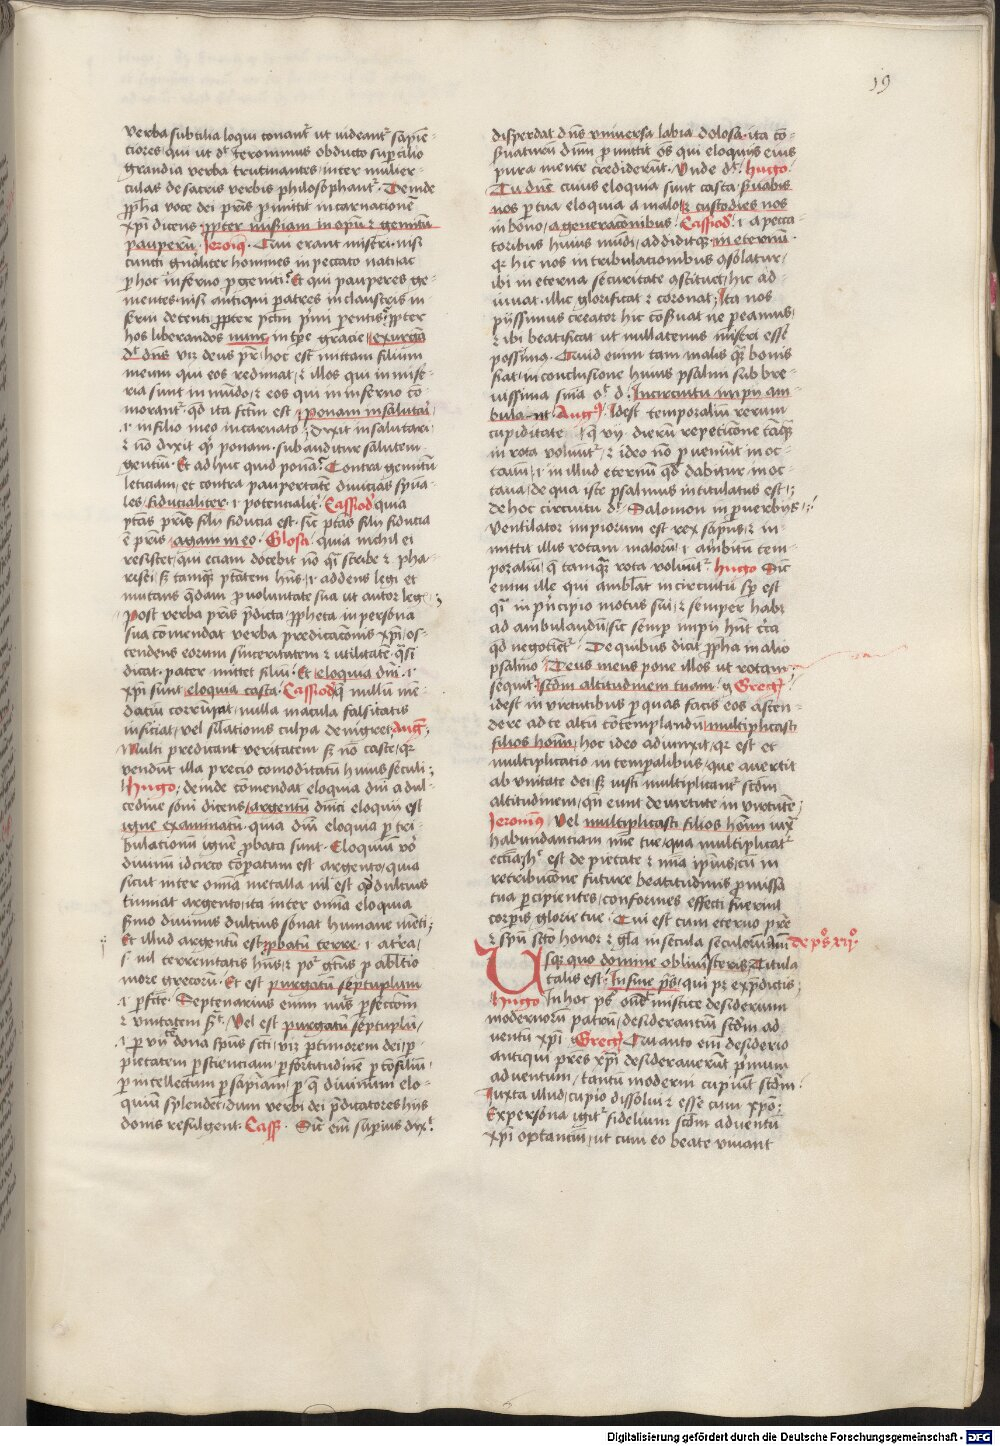 19
verba subtilia loqui conant᷑ ut videant᷑ sapiē-
ciores qui ut dt̄ Jeronimus obducto supercilio
grandia verba trutinantes inter mulier-
culas de sacris verbis philosophant᷑. Deinde
ꝓpħa voce dei pr̄is ꝓmittit incarnacionē
xp̄i dicens ꝓpter miseriam inopū et gemitū
pauperū. Jeronī9. Qui erant miseri nisi
cuncti gnāliter homines in peccato nati ac
ꝑ hoc inferno ꝓgeniti. Et qui pauperes ge-
mentes nisi antiqui patres in claustris in-
ferni detenti ꝓpter pctm̄ primi parentis ꝓpter
hos liberandos nunc in tpe gracie exurgā
dt̄ dn̄s viz deus pr̄ hoc est mittam filium
meum qui eos redimat et illos qui in mise-
ria sunt in mūdo et eos qui in inferno cō-
morant᷑ qd ita fctm̄ est ponam in salutari
i in filio meo incarnato dixit in salutari
et nō dixit qd ponam subauditur salutem
gentiū. Et adhuc quid ponā. Contra gemitū
leticiam et contra paupertatē divicias spūa-
les fiducialiter i potencialit᷑ Cassiod9 quia
ptās pr̄is filii fiducia est sic ptās filii fiducia
ē pr̄is agam in eo. Glosa quia nichil ei
resistet qui eciam docebit nō qi scribe et pha-
risei sz tamqͣ ptātem hn̄s i addens legi et
mutans qdam ꝓ voluntate sua ut autor legis
Post verba pr̄is pdicta ꝓpheta in persona
sua cōmendat verba predicacionis xp̄i os-
tendens eorum sinceritatem et utilitatē qͣsi
dicat pater mittet filiū. Et eloquia dn̄i i
xp̄i sunt eloquia casta. Cassiod9 qͥ nullū me-
daciū corrūpat nulla macula falsitatis
inficiat vel simlacionis culpa denigret Aug9
Multi predicant veritatem sz nō caste qͣ
vendunt illa precio comoditatū huius seculi
Hugo deinde cōmendat eloquia dn̄i a dul-
cedine soni dicens argentū dn̄ici eloquii est
igne examinatū quia dn̄i eloquia ꝑ tri-
bulacionū ignē ꝓbata sunt. Eloquiū vō
divinū idcirco cōparatum est argento quia
sicut inter omnia metalla nil est qd dulcius
tinniat argento ita inter omnia eloquia
sono divinus dulcius sonat humane menti
Et illud argentū est ꝓbatū terre i a tr̄a
s nil terrenitatis hn̄s et po9 gtūs ꝑ ablatio
more grecorū. Et est purgatū septuplum
i ꝑfcte. Septenarius enim nūs ꝑfeccōm
et unitatem sigt. Vel est purgatū septuplū
i ꝑ vii dona spūs scti viz ꝑ timorem dei ꝑ
pietatem ꝑ scienciam ꝑ fortitudinē ꝑ cōsiliū
ꝑ intellectum ꝑ sapiam ꝑ qe divinum elo-
quium splendet dum verbi dei pdicatores hiis
donis refulgent. Cass9. Dic em superius dixt
disperdat dn̄s universa labia dolosa ita cō-
servaturū dn̄m ꝓmittit eos qui eloquiis eius
pura mente crediderūt. Unde dt̄. Hugo
Tu dn̄e cuius eloquia sunt casta servabis
nos ꝑ tua eloquia a malo et custodies nos
in bono a generacōnibus. Cassiod9 i a pecca-
toribus huius mūdi addiditqz in eternū
qͣ hic nos in tribulacionibus cōsolatur
ibi in eterna securitate cōstituet hic ad-
iuvat illic glorificat et coronat Ita nos
piissimus creator hic cōservat ne peamus
et ibi beatificat ut nullatenus miseri esse
possimus. Quid enim tam malis qͣ bonis
fiat in conclusione huius psalmi sub bre-
vissima snia s d. In circuitu impii am-
bulant. Aug9. Idest temporaliū rerum
cupiditate qe vii dierū repeticione tāqͣ
in rota volvit᷑ et ideo nō ꝑveniūt in oc-
tavū i in illud eternum qd dabitur in oc-
tava de qua iste psalmus intitulatus est
de hoc circuitu dt̄ Salomon in proverbiis
ventilator impiorum est rex sapiēs et in-
mittit illis rotam malorū i ambitū tem-
poraliū qe tamqͣ rota volvit᷑ Hugo Dic
enim ille qui amblat in circuitu sp est
qͣ in principio motus sui et semper habt
ad ambulandū sic semp impii hn̄t circa
qd negocient᷑. De quibus dicit ꝓpha in alio
psalmo Deus meus pone illos ut rotam
sequit᷑ scdm altitudinem tuam g Greg9
idest in virtutibus ꝑ quas facis eos ascen-
dere ad te altū cōtemplandū multiplicasti
filios homi͂ hoc ideo adiunxit qͣ est et
multiplicatio in temporalibus que avertit
ab unitate dei sz iusti multiplicant᷑ scdm
altitudinem qn̄ eunt de virtute in virtutē
Jeronim9 Vel multiplicasti filios homi͂ iux
habundanciam mie tue qua multiplicat᷑
ecclīa hc est de pietate et mia ipius cū in
retribucōne future beatitudinis ꝓmissa
tua percipientes conformes effecti fuerint
corpis glorie tue. Qui est cum eterno pre
et spū scto honor et glā in secula seculorū am̄ de ps xii9
Usqz quo domine oblivisceris Titula
talis est. In fine ps qui pz ex pdictis
Hugo In hoc ps ond't mistice desiderium
modernorū patrū desiderantiū scdm ad-
ventū xp̄i Greg9 Quanto em desiderio
antiqui pres xp̄i desideraverūt primum
adventum tantū moderni cupiūt scdm
Iuxta illud cupio dissolvi et esse cum xpo
Ex persona igit᷑ fidelium scdm adventū
xp̄i optanciū ut cum eo beate vivant
Digitalisierung gefördert durch die Deutsche Forschungsgemeinschaft - DFG